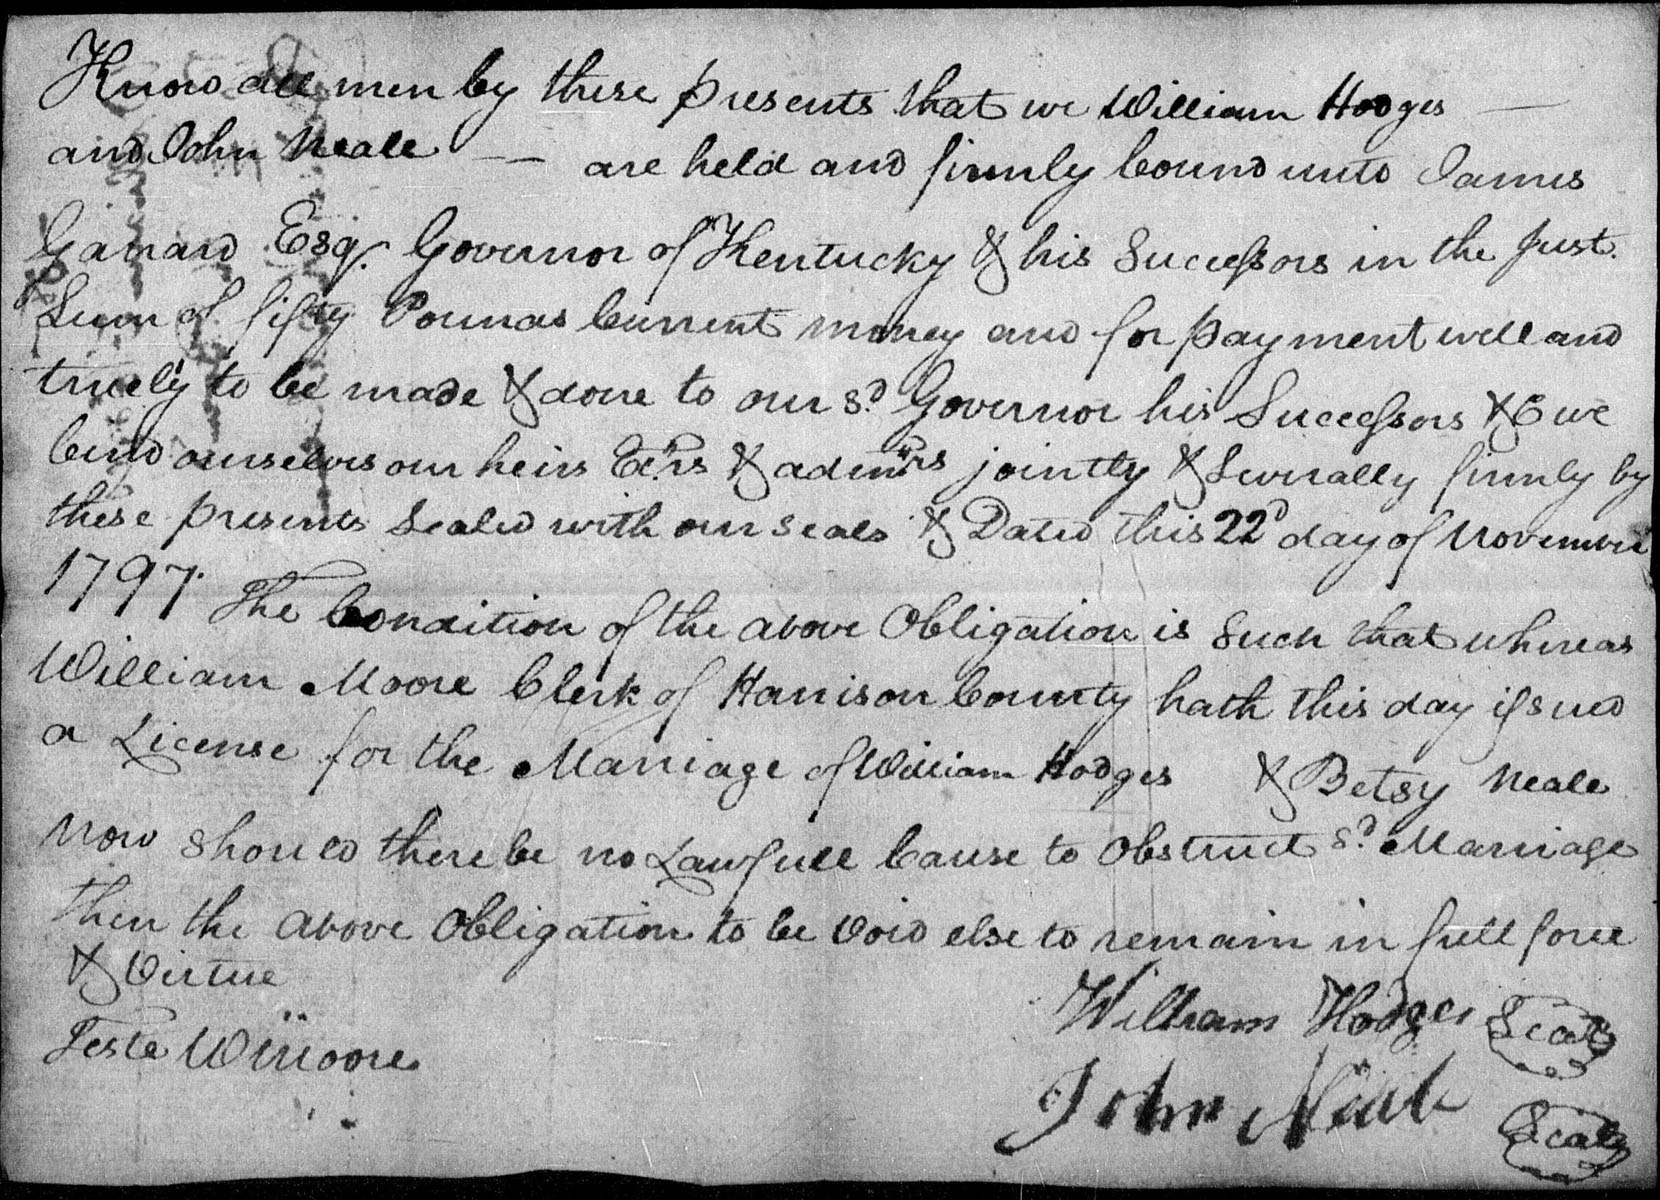 Know all men by these presents that we William Hodges —
and John Neale — — are held and firmly bound unto James
Garrard Esqr. Governor of Kentucky & his Successors in the just.
Sum of fifty Pounds Current money and for payment well and
truely to be made & done to our sd. Governor his Successors &C we
bind ourselves our heirs Exrs & admrs jointly & Severally firmly by
these presents Sealed with our seals & Dated this 22d day of November
1797. The Condition of the above Obligation is Such that whereas
William Moore Clerk of Harrison County hath this day issued
a License for the Marriage of William Hodges & Betsy Neale
now should there be no Lawfull Cause to Obstruct sd. Marriage
then the above Obligation to be void else to remain in full force
& Virtue
William Hodges Seal
Teste Wm Moore
John Neale Seal